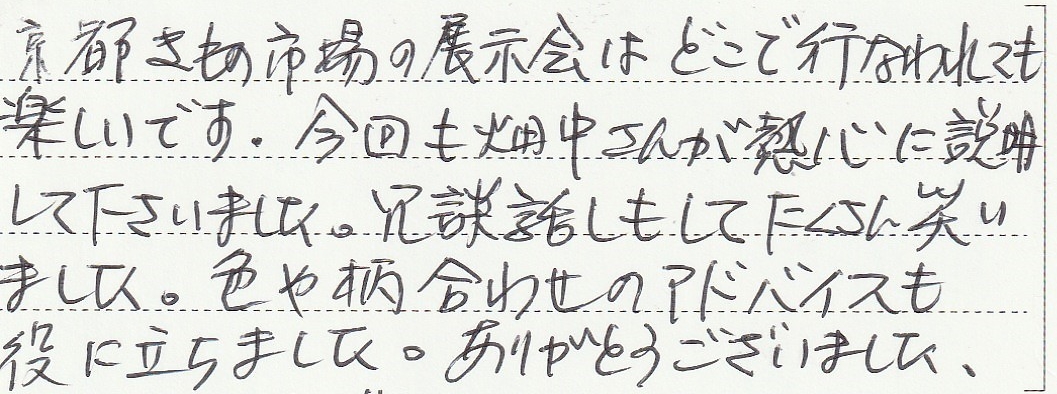 京都きもの市場の展示会はどこで行なわれても
楽しいです。今回も畑中さんが熱心に説明
して下さいました。冗談話しもしてたくさん笑い
ました。色や柄合わせのアドバイスも
役に立ちました。ありがとうございました、